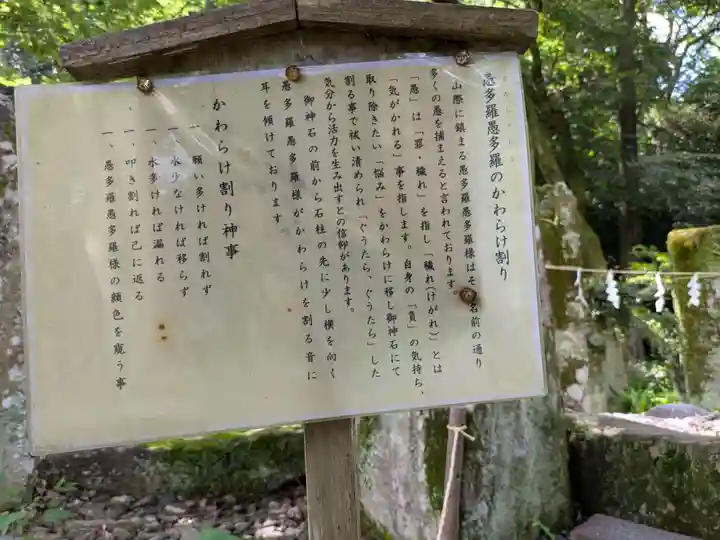 愚多羅愚多羅のかわらけ割り
山際に鎮まる愚多羅愚多羅様はそ 名前の通り
多くの愚を捕まえると言われております。
「愚」は「罪・穢れ」を指し「穢れ(けがれ)とは
「気がかれる」事を指します。自身の「負」の気持ち、
取り除きたい「悩み」をかわらけに移し御神石にて
割る事で祓い清められ「ぐうたら、ぐうたら」した
気分から活力を生み出すとの信仰があります。
御神石の前から石柱の先に少し横を向く
愚多羅愚多羅様がかわらけを割る音に
耳を傾けております
かわらけ割り神事
一、願い多ければ割れず
一、水少なければ移らず
一、水多ければ漏れる
一、叩き割れば己に返る
一、愚多羅愚多羅様の顔色を窺う事